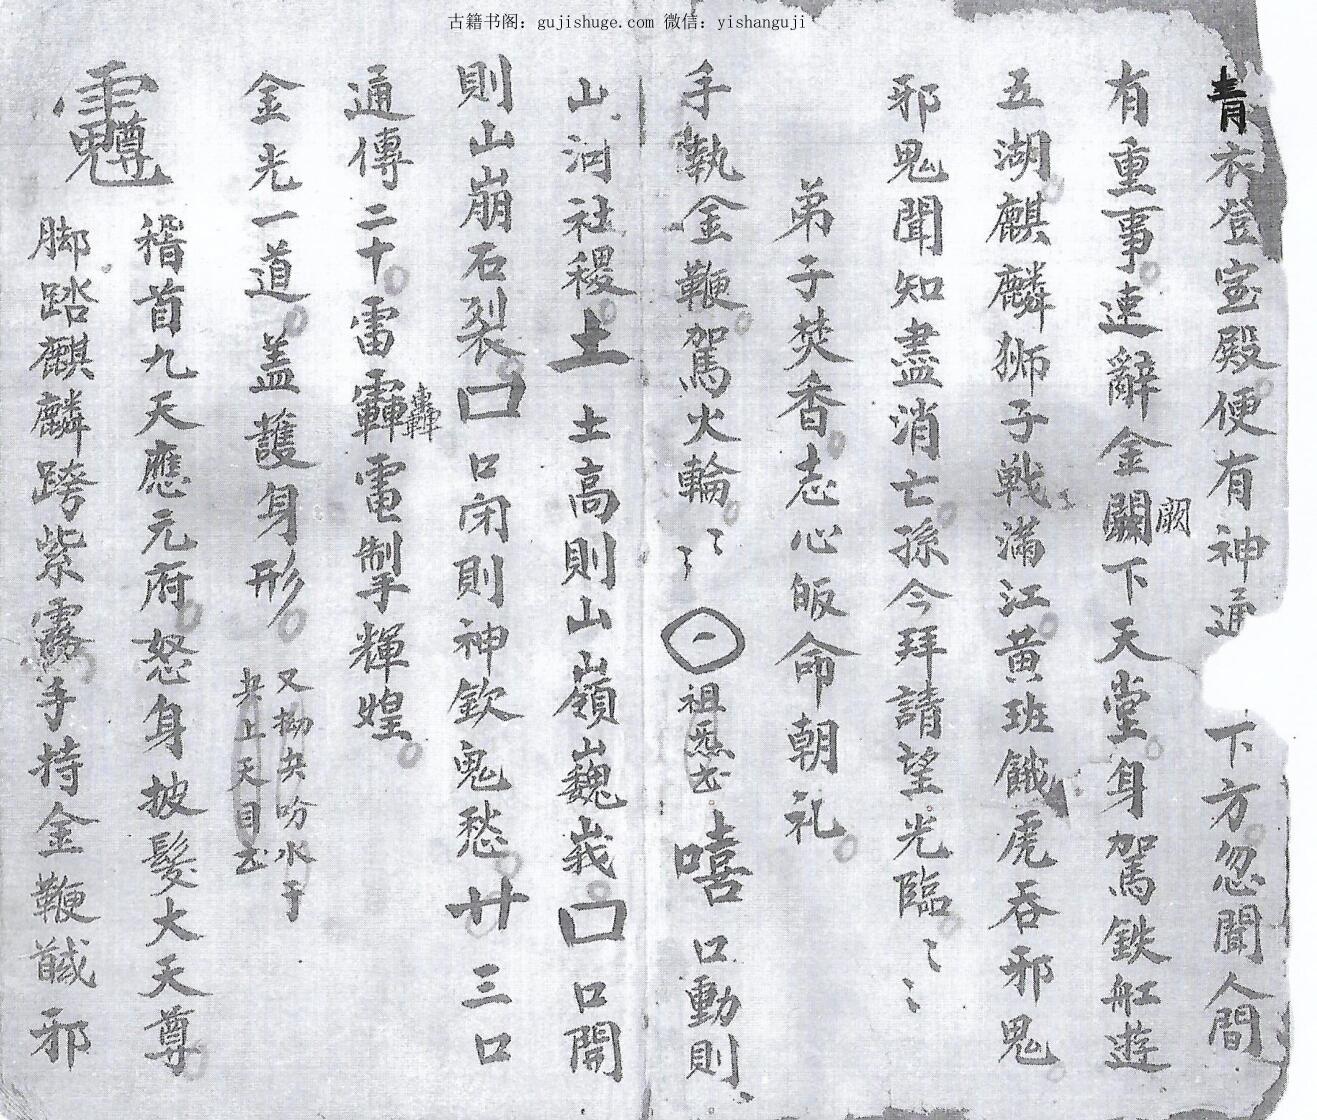 古籍书阁：gujishuge.com 微信：yishanguji
青衣登宝殿便有神通下方忽聞人間
有重事速辭金闕下天堂身駕鉄舡遊
闕
五湖麒麟狮子戦滿江黄班餓虎吞邪鬼
邪鬼聞知盡消亡孫今拜請望光臨〻〻
弟子焚香志心皈命朝礼
手執金鞭駕火輪〻〻祖炁
嘻口動則
山河社稷土土高則山嶺巍峩口口開
則山崩石裂口口闭則神欽鬼愁廿三口
通傳二十雷轟電掣輝煌
轟
金光一道盖護身形
又拗央吩水于
央止天目
稽首九天應元府怒身披髮大天尊
脚踏麒麟跨紫霧手持金鞭馘邪